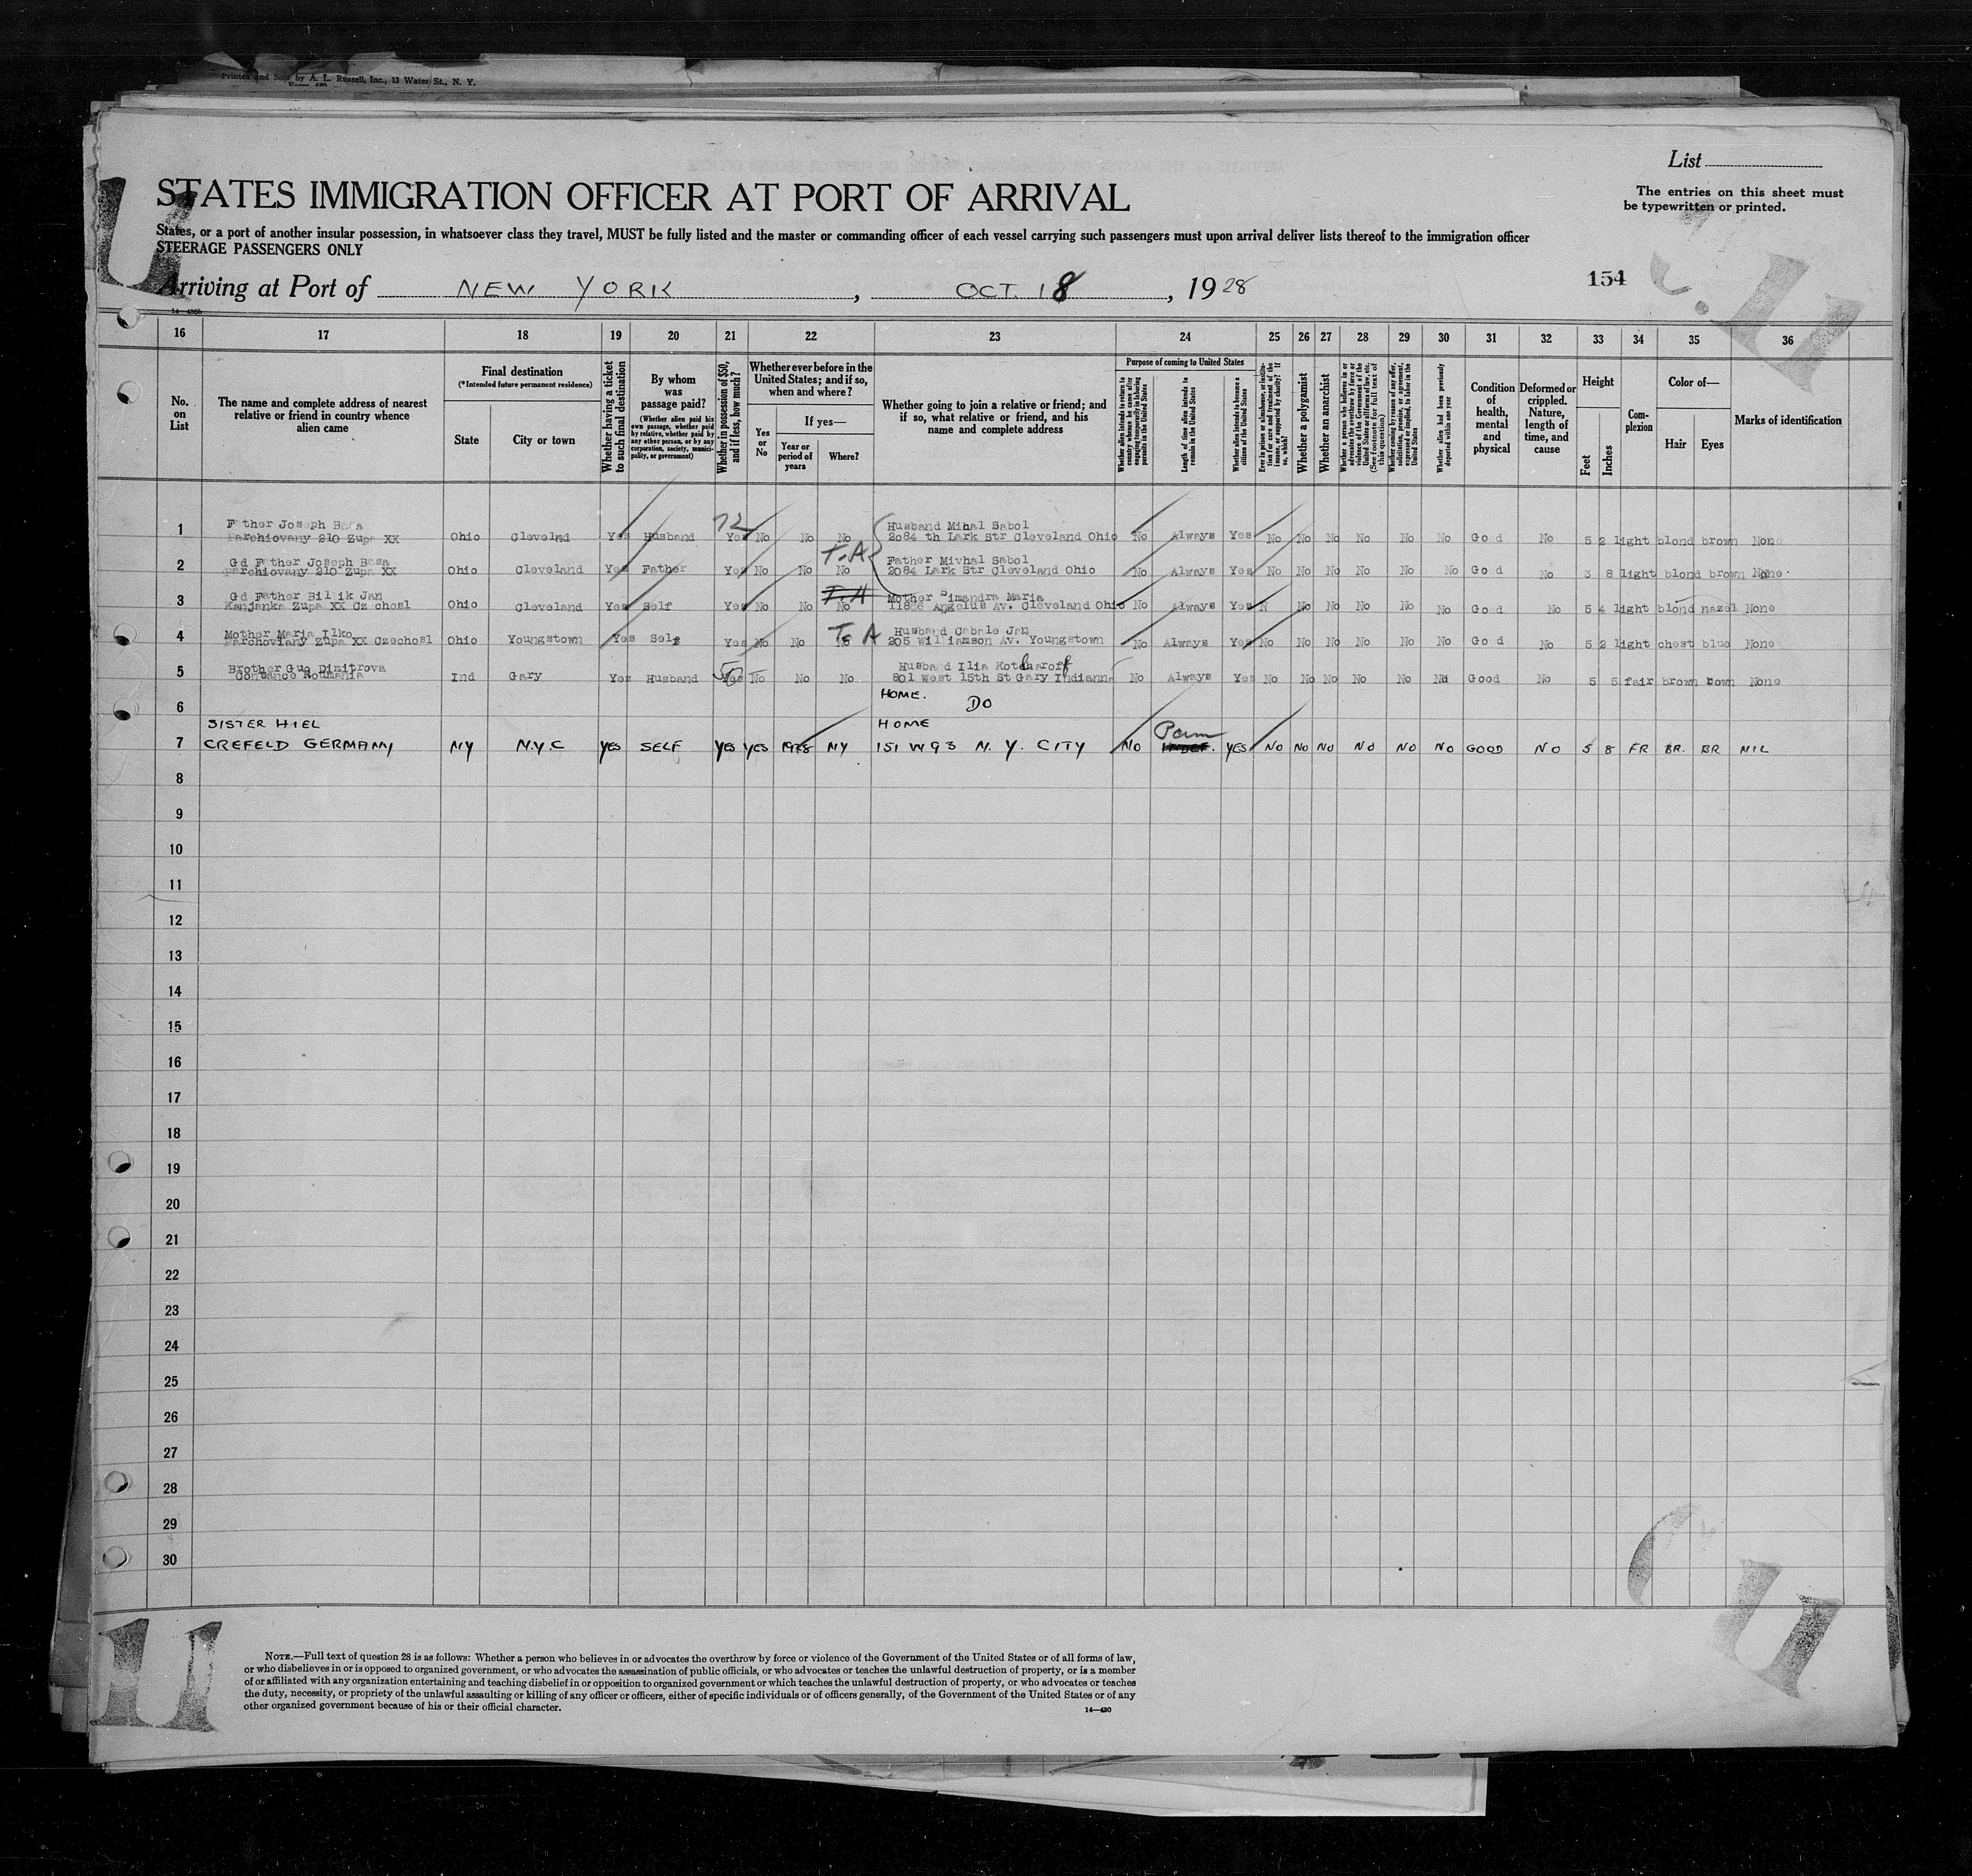 Printed and Sold by A. L. Russell, Inc., 13 Water St., N. Y.
List
STATES IMMIGRATION OFFICER AT PORT OF ARRIVAL
The entries on this sheet must
be typewritten or printed.
States, or a port of another insular possession, in whatsoever class they travel, MUST be fully listed and the master or commanding officer of each vessel carrying such passengers must upon arrival deliver lists thereof to the immigration officer
STEERAGE PASSENGERS ONLY
Arriving at Port of NEW YORK, OCT. 18, 1928
154
16 17 18 19 20 21 22 23 24 25 26 27 28 29 30 31 32 33 34 35 36
No. on List
The name and complete address of nearest relative or friend in country whence alien came
Final destination
(*Intended future permanent residence)
State
City or town
Whether having a ticket to such final destination
By whom was passage paid?
(Whether alien paid his own passage, whether paid by relative, whether paid by any other person, or by any corporation, society, municipality, or government)
Whether in possession of $50, and if less, how much?
Whether ever before in the United States; and if so, when and where?
Yes or No
If yes—
Year or period of years
Where?
Whether going to join a relative or friend; and if so, what relative or friend, and his name and complete address
Purpose of coming to United States
Whether alien intends to return to country whence he came after engaging temporarily in laboring pursuits in the United States
Length of time alien intends to remain in the United States
Whether alien intends to become a citizen of the United States
Ever in prison or almshouse, or institution for care and treatment of the insane, or supported by charity? If so, which?
Whether a polygamist
Whether an anarchist
Whether a person who believes in or advocates the overthrow by force or violence of the Government of the United States or all forms of law, etc. (See footnote for full text of this question)
Whether coming by reason of any offer, solicitation, promise, or agreement, expressed or implied, to labor in the United States
Whether alien had been previously deported within one year
Condition of health, mental and physical
Deformed or crippled. Nature, length of time, and cause
Height
Feet
Inches
Complexion
Color of—
Hair
Eyes
Marks of identification
72
1 Father Joseph Basa Husband Mihal Sabol
Parchiovany 210 Zupa XX Ohio Clevelnd Yes Husband Yes No No No 2084 th Lark Str Cleveland Ohio No Always Yes No No No No No No Good No 5 2 light blond brown None
T.A
2 Gd Father Joseph Basa Father Mivhal Sabol
Parchiovany 210 Zupa XX Ohio Cleveland Yes Father Yes No No No 2084 Lark Str Cleveland Ohio No Always Yes No No No No No No Good No 3 8 light blond brown None
3 Gd Father Billik Jan Mother Simandra Maria
Kanjanka Zupa XX Czechosl Ohio Cleveland Yes Self Yes No No No 11886 Angelus Av. Cleveland Ohio No Always Yes N No No No No No Good No 5 4 light blond hazel None
4 Mother Maria Ilko To A Husband Cabale Jan
Parchoviany Zupa XX Czechosl Ohio Youngstown Yes Self Yes No No No 205 Williamson Av. Youngstown No Always Yes No No No No No No Good No 5 2 light chest blue None
5 Brother Guo Dimitrova 50 Husband Ilia Kotcharoff
Contance Roumania Ind Gary Yes Husband Yes No No No 801 West 15th St Gary Indiann No Always Yes No No No No No No Good No 5 5 fair brown bown None
HOME.
6 DO
SISTER HIEL HOME Perm
7 CREFELD GERMANY NY N.Y.C YES SELF YES YES 1928 NY 151 W 93 N. Y. CITY NO INDEF. YES NO NO NO NO NO NO GOOD NO 5 8 FR BR. BR NIL
8
9
10
11
12
13
14
15
16
17
18
19
20
21
22
23
24
25
26
27
28
29
30
NOTE.—Full text of question 28 is as follows: Whether a person who believes in or advocates the overthrow by force or violence of the Government of the United States or of all forms of law,
or who disbelieves in or is opposed to organized government, or who advocates the assassination of public officials, or who advocates or teaches the unlawful destruction of property, or is a member
of or affiliated with any organization entertaining and teaching disbelief in or opposition to organized government or which teaches the unlawful destruction of property, or who advocates or teaches
the duty, necessity, or propriety of the unlawful assaulting or killing of any officer or officers, either of specific individuals or of officers generally, of the Government of the United States or of any
other organized government because of his or their official character.
14—430